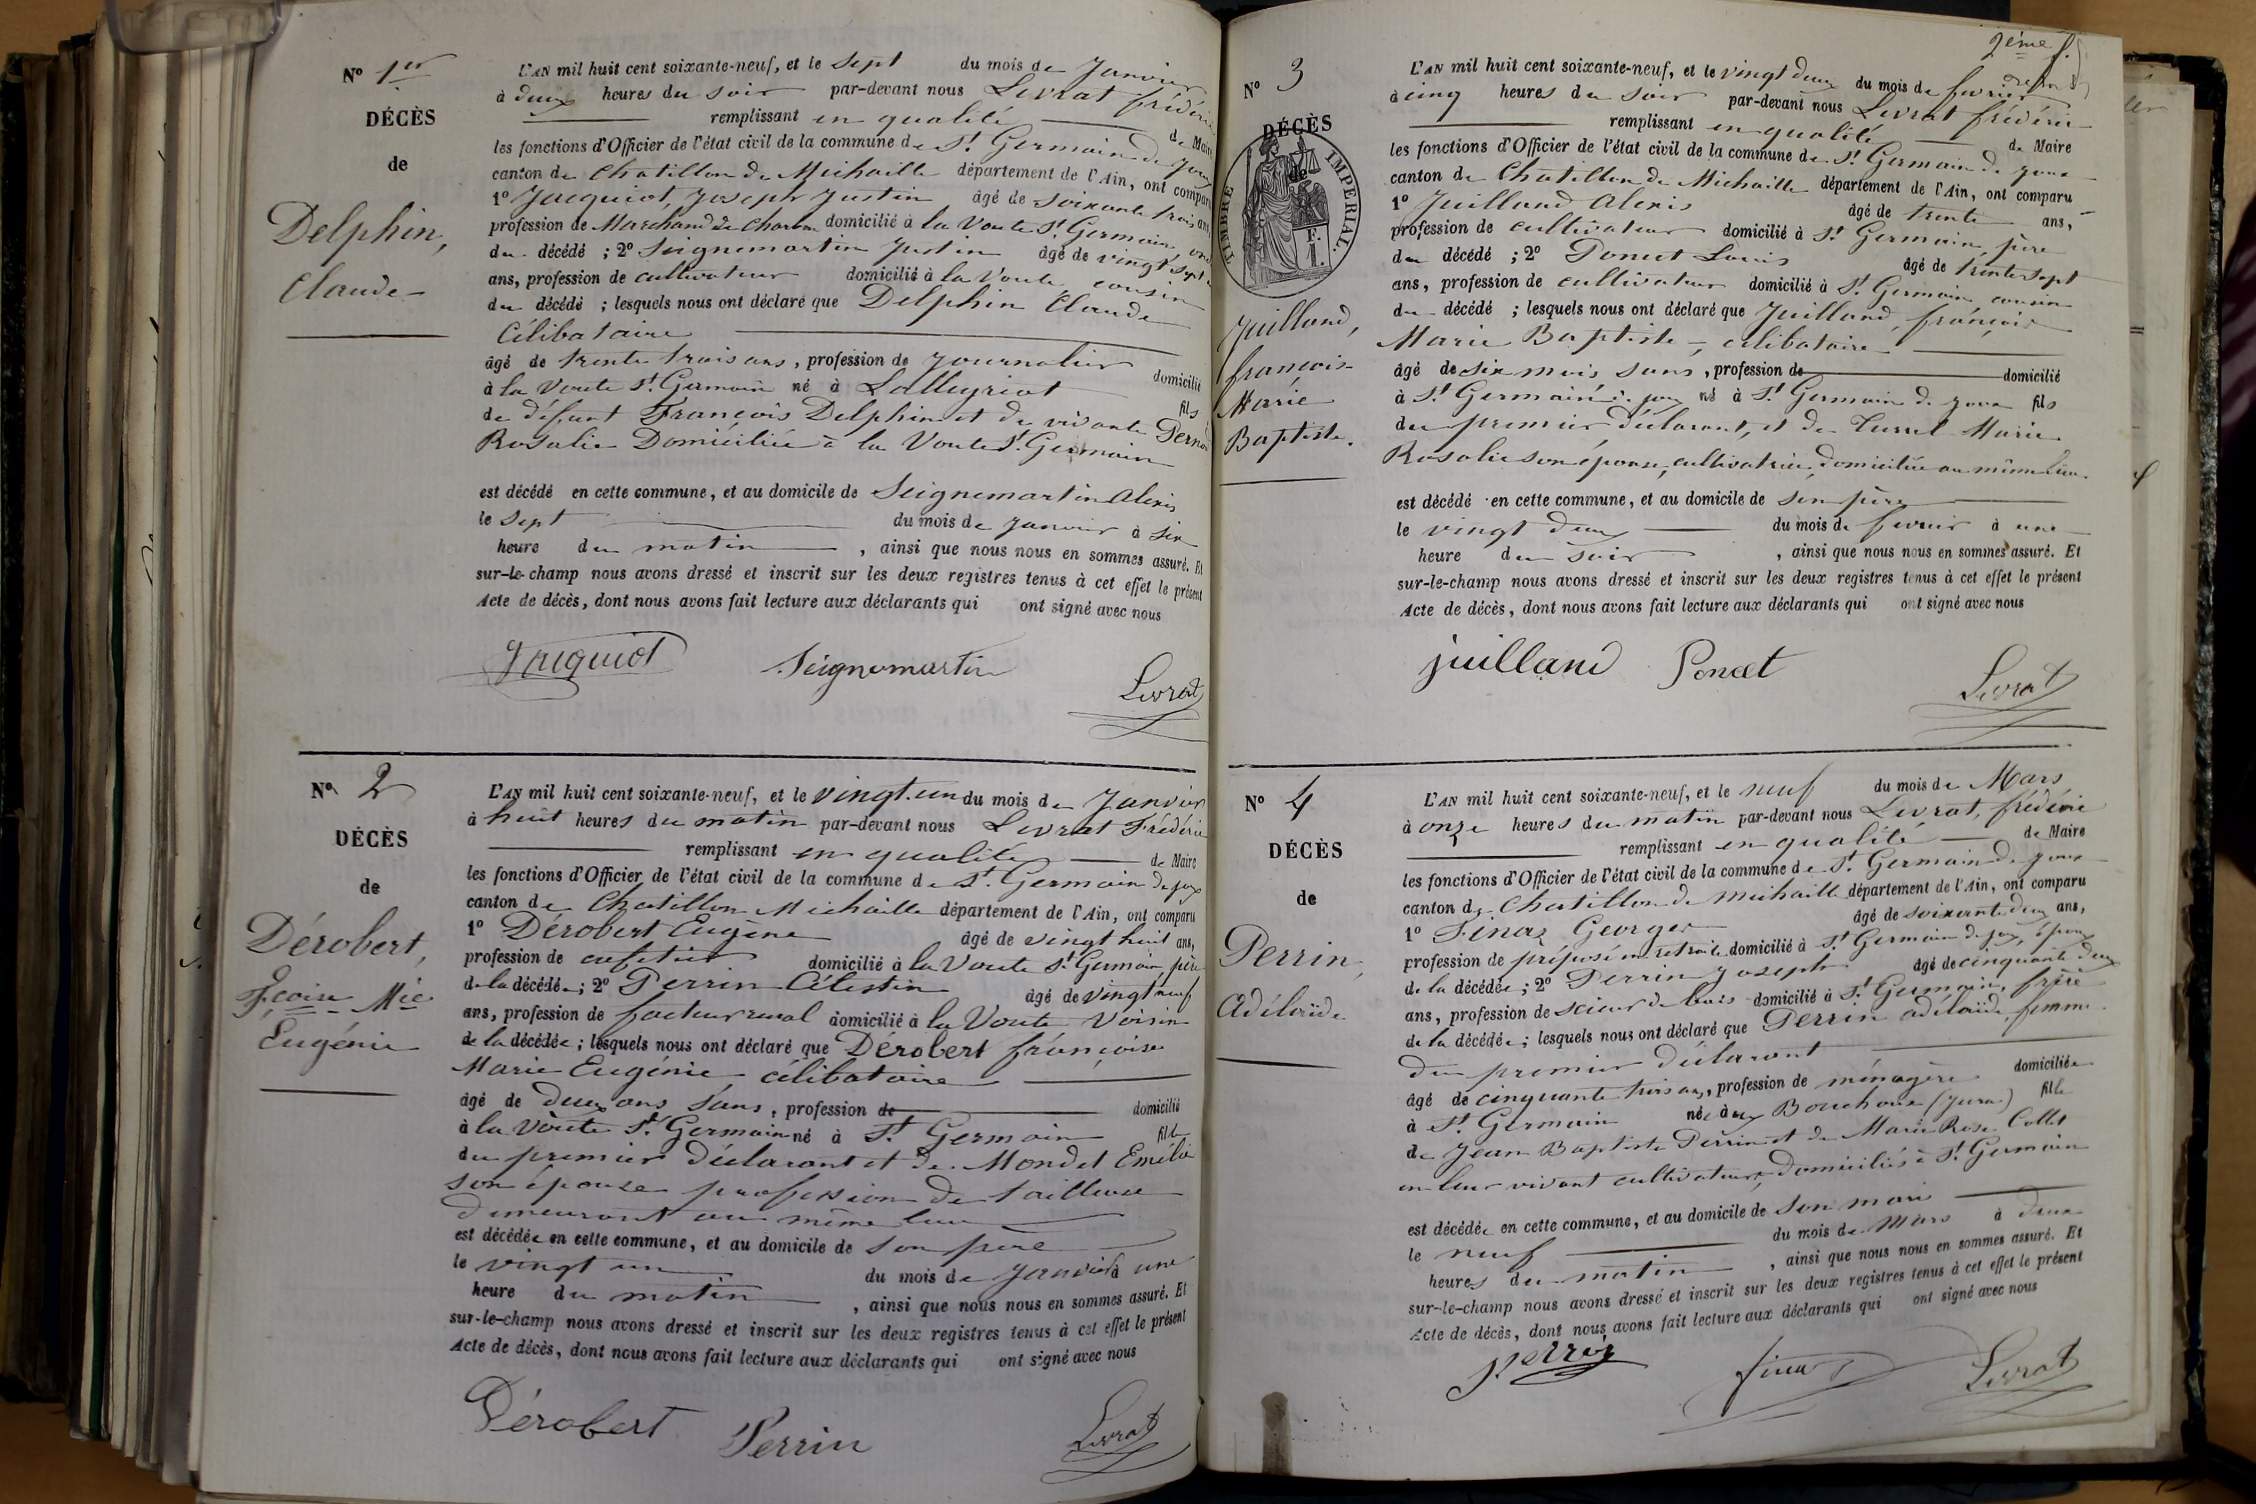 N° 1er
DÉCÈS
de
Delphin,
Claude
L'AN mil huit cent soixante-neuf, et le sept du mois de Janvier
à deux heures du soir par-devant nous Livrat frédéric
remplissant en qualité de Maire
les fonctions d'Officier de l'état civil de la commune de St. Germain de joux
canton de Chatillon de Michaille département de l'Ain, ont comparu
1° Jacquiot, Joseph Justin âgé de soixante trois ans,
profession de Marchand de charbon domicilié à la Voute St. Germain,
du décédé ; 2° Seignemartin Justin âgé de vingt sept
ans, profession de cultivateur domicilié à la Voute, cousin
du décédé ; lesquels nous ont déclaré que Delphin Claude
Célibataire
âgé de trente trois ans, profession de journalier domicilié
à la Voute St. Germain né à Lalleyriat fils
de défunt François Delphin et de vivante
Rosalie Domiciliée à la Voute St. Germain
est décédé en cette commune, et au domicile de Seignemartin Alexis
le sept du mois de Janvier à six
heure du matin, ainsi que nous nous en sommes assuré. Et
sur-le-champ nous avons dressé et inscrit sur les deux registres tenus à cet effet le présent
Acte de décès, dont nous avons fait lecture aux déclarants qui ont signé avec nous
Jacquiot Seignemartin
Livrat
N° 2
DÉCÈS
de
Dérobert,
Fçoise Mie
Eugénie
L'AN mil huit cent soixante-neuf, et le vingt-un du mois de Janvier
à huit heures du matin par-devant nous Livrat Frédéric
remplissant en qualité de Maire
les fonctions d'Officier de l'état civil de la commune de St. Germain de joux
canton de Chatillon Michaille département de l'Ain, ont comparu
1° Dérobert Eugène âgé de vingt huit ans,
profession de cafetier domicilié à la Voute St. Germain, père
de la décédée ; 2° Perrin Célestin âgé de vingt neuf
ans, profession de facteur rural domicilié à la Voute Voisin
de la décédée ; lesquels nous ont déclaré que Dérobert françoise
Marie Eugénie célibataire
âgé de deux ans sans, profession de domicilié
à la Voute St. Germain né à St. Germain fille
du premier déclarant et de Mondet Emélie
son épouse profession de tailleuse
demeurant au même lieu
est décédée en cette commune, et au domicile de son père
le vingt un du mois de Janvier à une
heure du matin, ainsi que nous nous en sommes assuré. Et
sur-le-champ nous avons dressé et inscrit sur les deux registres tenus à cet effet le présent
Acte de décès, dont nous avons fait lecture aux déclarants qui ont signé avec nous
Dérobert Perrin
Livrat
2ème f.
N° 3
DÉCÈS
de
TIMBRE IMPÉRIAL.
1 F.
Juilland,
françois
Marie
Baptiste.
L'AN mil huit cent soixante-neuf, et le vingt deux du mois de fevrier
à cinq heures du soir par-devant nous Livrat frédéric
remplissant en qualité de Maire
les fonctions d'Officier de l'état civil de la commune de St. Germain de joux
canton de Chatillon de Michaille département de l'Ain, ont comparu
1° Juilland Alexis âgé de trente ans,
profession de cultivateur domicilié à St. Germain, père
du décédé ; 2° Poncet Louis âgé de trente sept
ans, profession de cultivateur domicilié à St. Germain, cousin
du décédé ; lesquels nous ont déclaré que Juilland, françois
Marie Baptiste, célibataire
âgé de six mois sans, profession de domicilié
à St. Germain de joux né à St. Germain de joux fils
du premier déclarant, et de Turrel Marie
Rosalie son épouse, cultivatrice, domiciliée au même lieu.
est décédé en cette commune, et au domicile de son père
le vingt deux du mois de fevrier à une
heure du soir, ainsi que nous nous en sommes assuré. Et
sur-le-champ nous avons dressé et inscrit sur les deux registres tenus à cet effet le présent
Acte de décès, dont nous avons fait lecture aux déclarants qui ont signé avec nous
juilland Poncet
Livrat
N° 4
DÉCÈS
de
Perrin,
Adélaïde
L'AN mil huit cent soixante-neuf, et le neuf du mois de Mars
à onze heures du matin par-devant nous Livrat, frédéric
remplissant en qualité de Maire
les fonctions d'Officier de l'état civil de la commune de St. Germain de joux
canton de Chatillon de michaille département de l'Ain, ont comparu
1° Finaz George âgé de soixante deux ans,
profession de préposé en retraite domicilié à St. Germain de joux, époux
de la décédée ; 2° Perrin Joseph âgé de cinquante deux
ans, profession de scieur de bois domicilié à St. Germain, frère
de la décédée ; lesquels nous ont déclaré que Perrin adélaïde femme
du premier déclarant
âgé de cinquante trois ans, profession de ménagère domiciliée
à St. Germain née aux Bouchoux (Jura) fille
de Jean Baptiste Perrin et de Marie Rose Collet
en leur vivant cultivateurs, domiciliés à St. Germain
est décédée en cette commune, et au domicile de son mari
le neuf du mois de Mars à deux
heures du matin, ainsi que nous nous en sommes assuré. Et
sur-le-champ nous avons dressé et inscrit sur les deux registres tenus à cet effet le présent
Acte de décès, dont nous avons fait lecture aux déclarants qui ont signé avec nous
perrin finaz Livrat